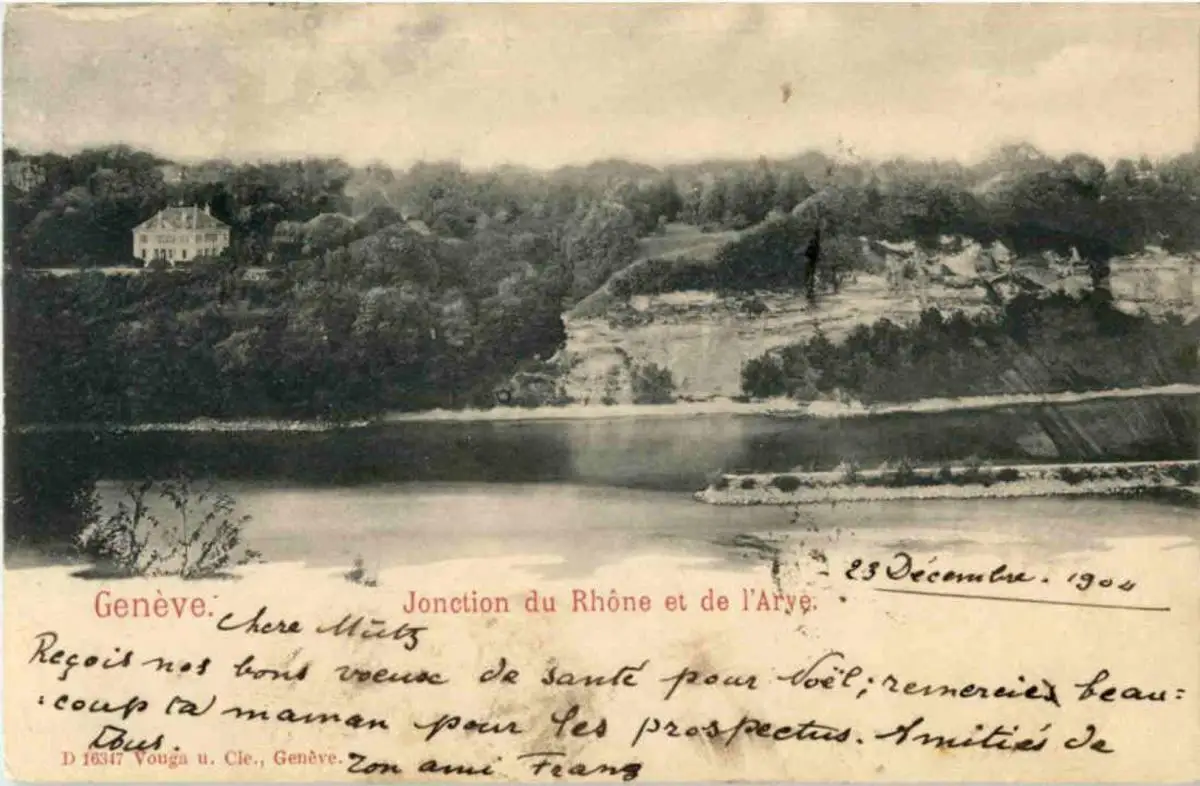 23 Décembre. 1904
Genève.
Jonction du Rhône et de l'Arve.
Chere Mutz
Reçois nos bons voeux de santé pour Noël; remercie beau=
coup ta maman pour les prospectus. Amitiés de
tous.
Ton ami Franz
D 16347 Vouga u. Cie., Genève.